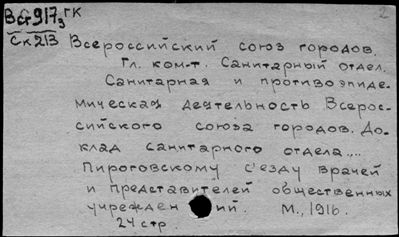 Вст917з ГК
2
Ск213
Всероссийский союз городов.
Гл. ком-т. Санитарный отдел.
Санитарная и противоэпиде-
мическая деятельность Всерос-
сийского союза городов. До-
клад санитарного отдела....
Пироговскому с'езду врачей
и представителей общественных
учрежден ий. М., 1916.
24 стр